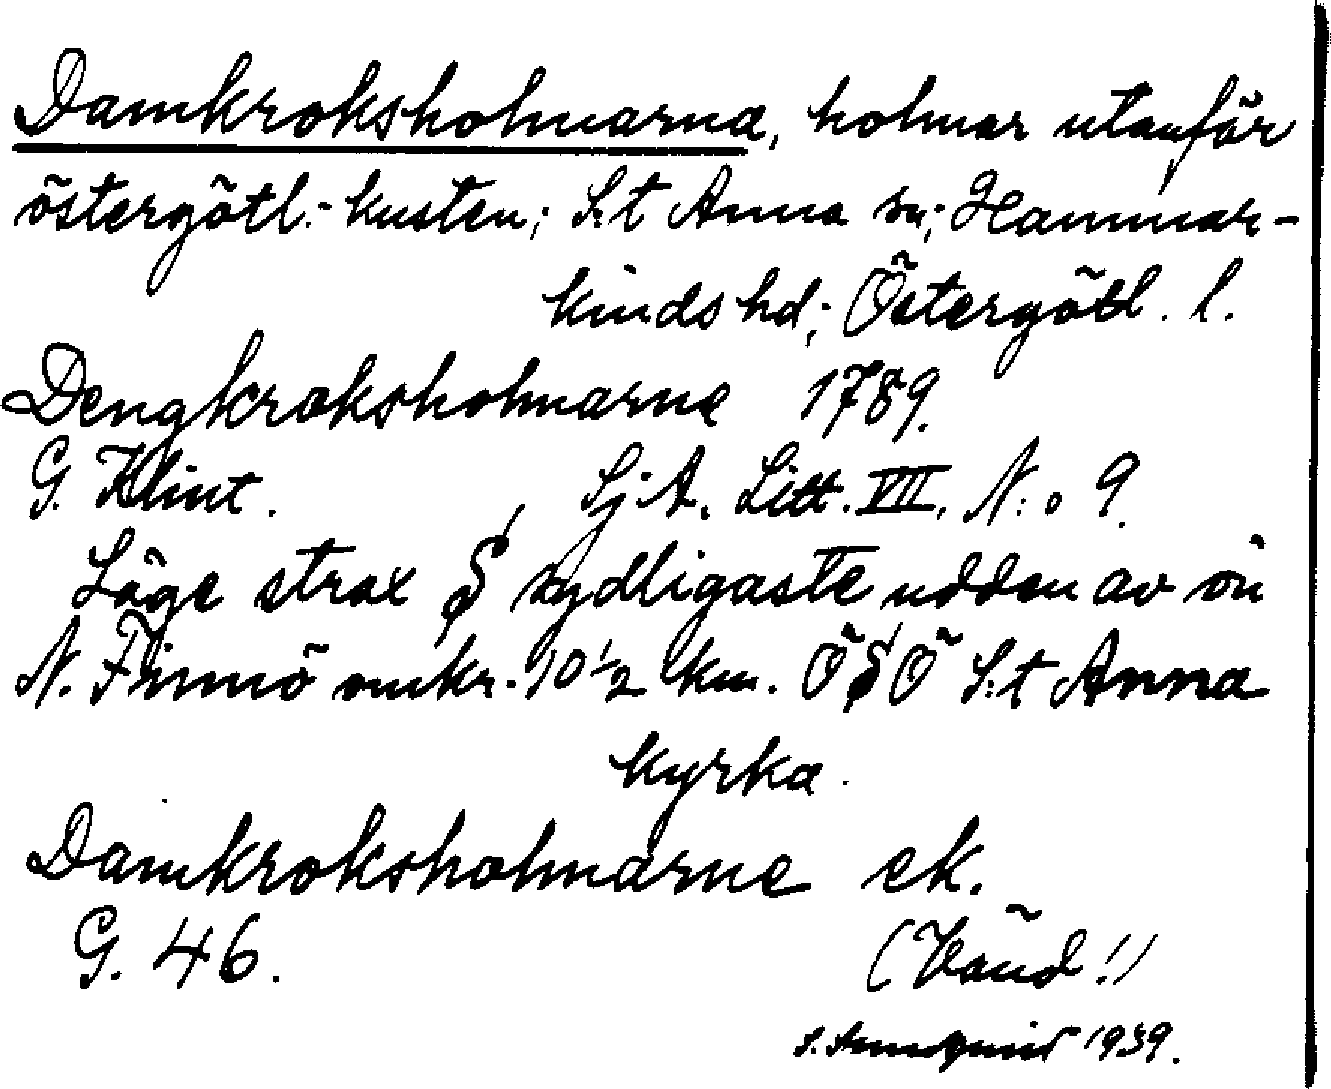 Damkroksholmarna, holmar utanför
östergötl.-kusten; S:t Anna sn; Hammar-
kinds hd; Östergötl. l.
Dengkroksholmarne 1789.
G. Klint. Sj.A. Litt. VII, N:o 9.
Läge strax S sydligaste udden av ön
N. Finnö omkr. 10½ km. ÖSÖ S:t Anna
kyrka.
Damkroksholmarne ek.
G. 46. (Vänd!)
1939.